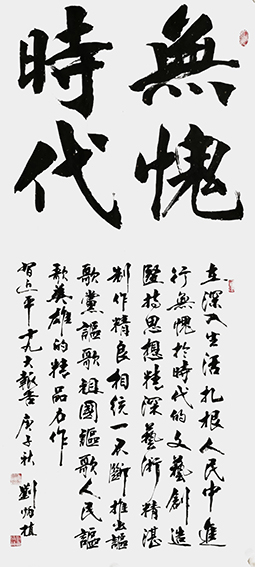 無愧
時代
在深入生活扎根人民中進
行無愧於時代的文藝創造
堅持思想精深藝術精湛
制作精良相統一不斷推出謳
歌黨謳歌祖國謳歌人民謳
歌英雄的精品力作
習近平十九大報告 庚子秋
劉